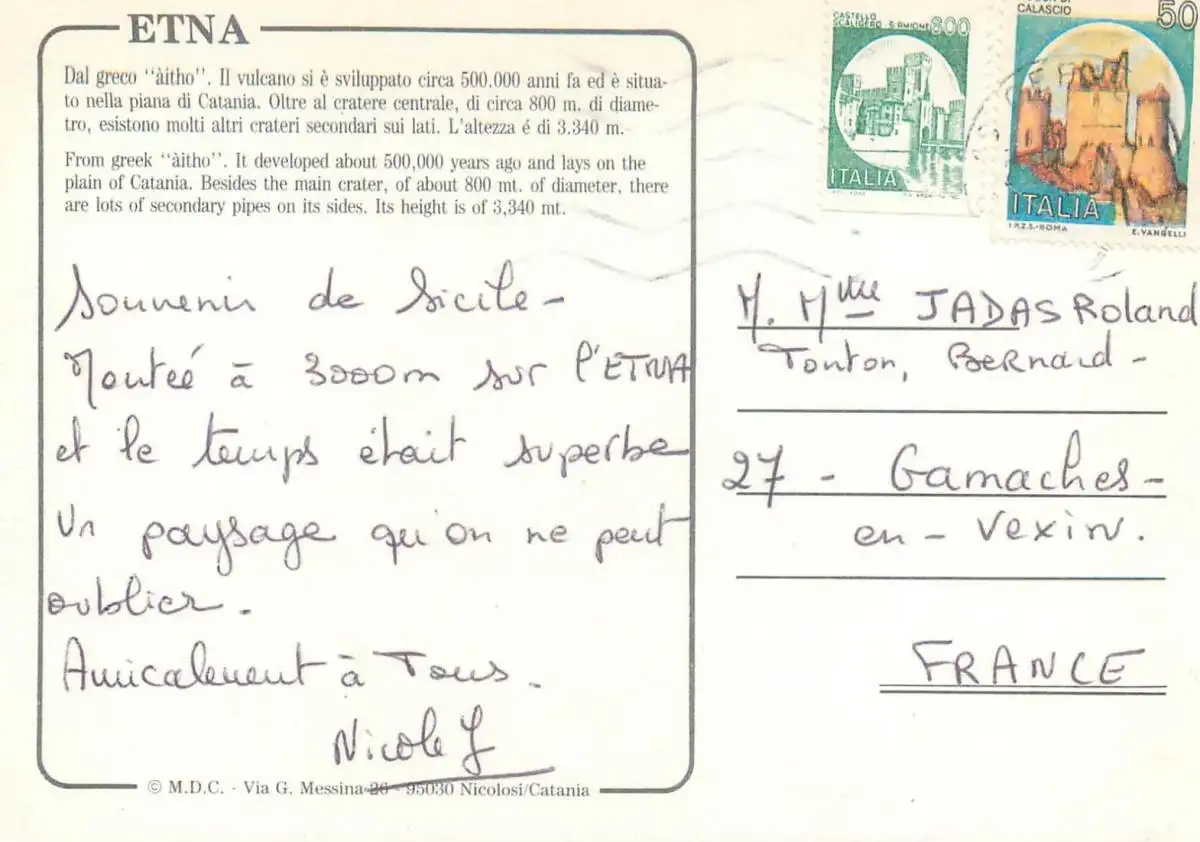 ETNA
Dal greco "àitho". Il vulcano si è sviluppato circa 500.000 anni fa ed è situa-
to nella piana di Catania. Oltre al cratere centrale, di circa 800 m. di diame-
tro, esistono molti altri crateri secondari sui lati. L'altezza é di 3.340 m.
From greek "àitho". It developed about 500,000 years ago and lays on the
plain of Catania. Besides the main crater, of about 800 mt. of diameter, there
are lots of secondary pipes on its sides. Its height is of 3,340 mt.
Souvenir de Sicile -
Monteé à 3000m sur l'ETNA
et le temps était superbe
Un paysage qu'on ne peut
oublier.
Amicalement à Tous.
Nicole J
© M.D.C. - Via G. Messina 26 - 95030 Nicolosi/Catania
CASTELLO
SCALIGERO - SIRMIONE 600
ITALIA
CALASCIO
50
ITALIA
I.P.Z.S.-ROMA E. VANGELLI
M. Mme JADAS Roland
Tonton, Bernard -
27 - Gamaches -
en - Vexin.
FRANCE